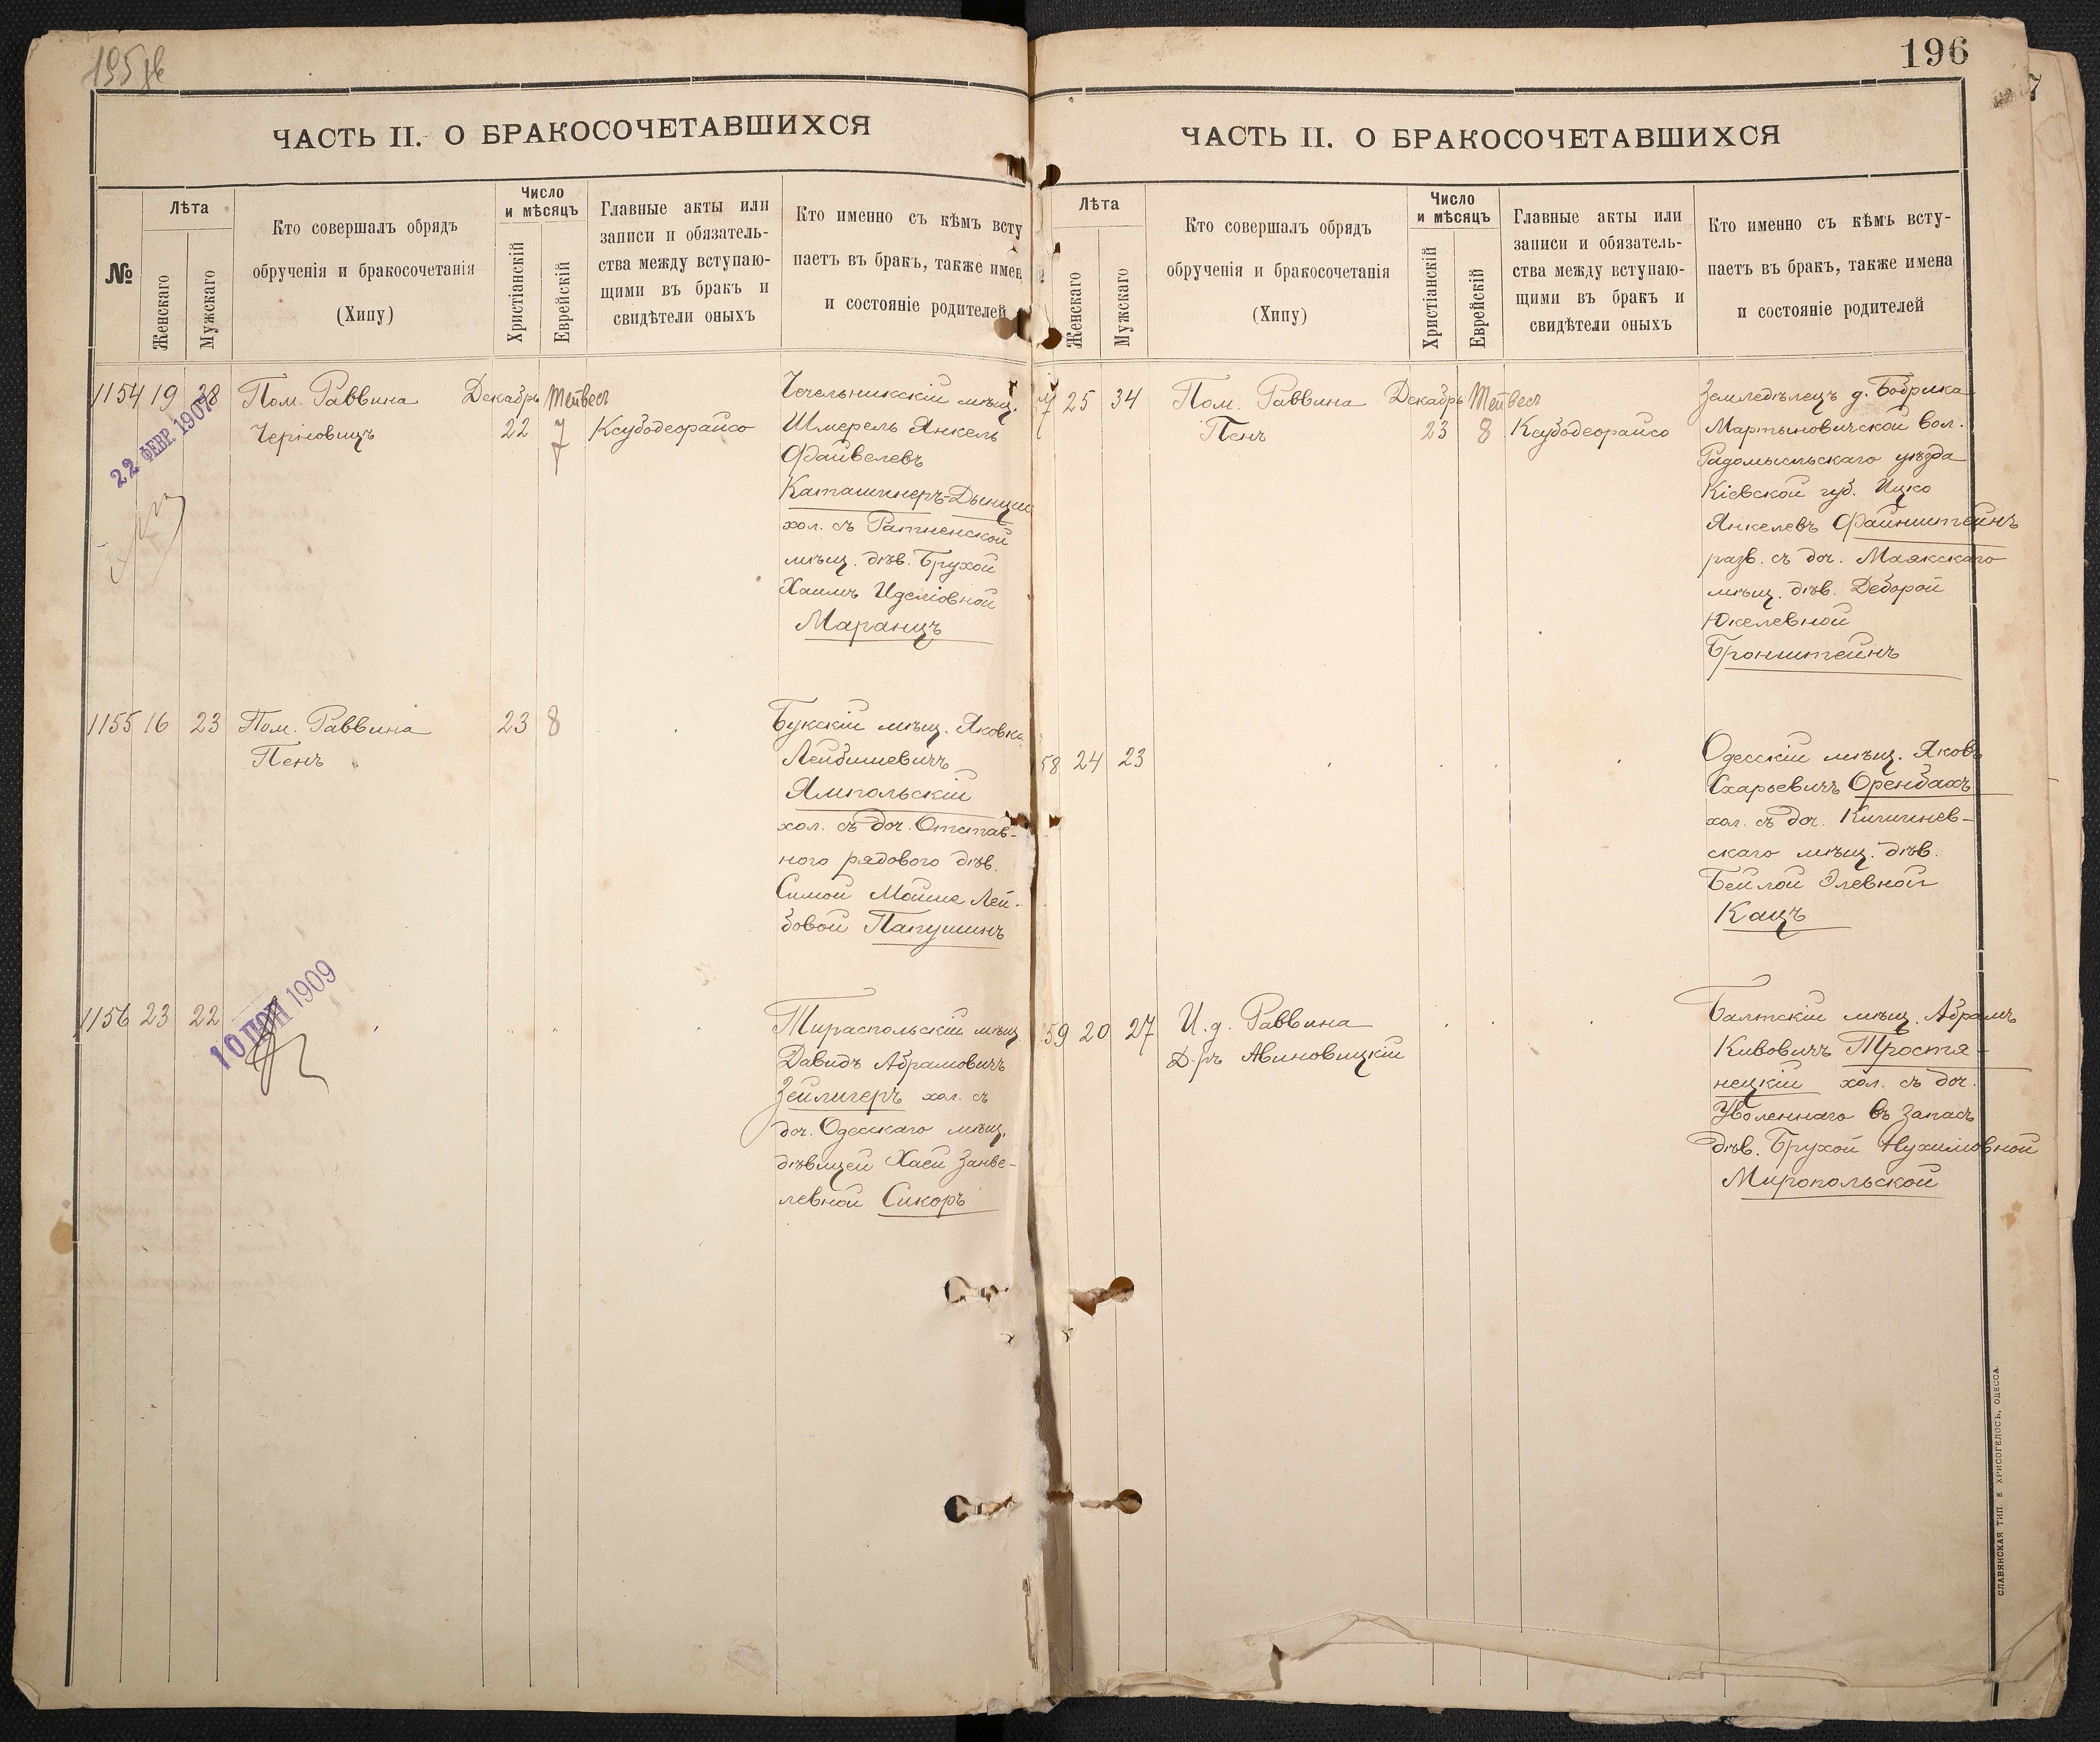 195 зв
ЧАСТЬ II. О БРАКОСОЧЕТАВШИХСЯ
№
Лѣта
Женскаго
Мужскаго
Кто совершалъ обрядъ
обрученія и бракосочетанія
(Хипу)
Число
и мѣсяцъ
Христіанскій
Еврейскій
Главные акты или
записи и обязатель-
ства между вступаю-
щими въ бракъ и
свидѣтели оныхъ
Кто именно съ кѣмъ всту
паетъ въ бракъ, также имен
и состояніе родителей
1154 19 28 Пом. Раввина Декабрь Тейвесъ
Черновицъ 22 7 Ксубодеорайсо
22 ФЕВР. 1907
Чечельникскій мѣщ.
Шмерель Янкель
Файвелевъ
Каташинеръ-Дынцис
хол. съ Ратненской
мѣщ. дѣв. Брухой
Хаимъ Иделіовной
Маранцъ
1155 16 23 Пом. Раввина 23 8
Пенъ
Букскій мѣщ. Яковъ
Лейбишевичъ
Ямпольскій
хол. съ доч. Отстав-
ного рядового дѣв.
Симой Мойше Лей-
бовой Папушинъ
1156 23 22
10 ІЮН 1909
Тираспольскій мѣщ
Давидъ Абрамовичъ
Зейлигеръ хол. съ
доч. Одесскаго мѣщ.
дѣвицей Хаей Занве-
левной Сикоръ
196
ЧАСТЬ II. О БРАКОСОЧЕТАВШИХСЯ
Лѣта
Женскаго
Мужскаго
Кто совершалъ обрядъ
обрученія и бракосочетанія
(Хипу)
Число
и мѣсяцъ
Христіанскій
Еврейскій
Главные акты или
записи и обязатель-
ства между вступаю-
щими въ бракъ и
свидѣтели оныхъ
Кто именно съ кѣмъ всту-
паетъ въ бракъ, также имена
и состояніе родителей
57 25 34 Пом. Раввина Декабрь Тейвесъ
Пенъ 23 8 Ксубодеорайсо
Земледѣлецъ д. Бобрика
Мартыновичской вол.
Радомысльскаго уѣзда
Кіевской губ. Ицко
Янкелевъ Файнштейнъ
разв. съ доч. Маякскаго
мѣщ. дѣв. Деборой
Юкелевной
Бронштейнъ
58 24 23
Одесскій мѣщ. Яковъ
Схарьевичъ Оренбахъ
хол. съ доч. Кишинев-
скаго мѣщ. дѣв.
Бейлой Элевной
Кацъ
59 20 27 И.д. Раввина
Д-ръ Авиновицкій
Балтскій мѣщ. Абрамъ
Кивовичъ Тростя-
нецкій хол. съ доч.
Уволеннаго въ запасъ
дѣв. Брухой Нухимовной
Миропольской
СЛАВЯНСКАЯ ТИП. Е. ХРИСОГЕЛОСЪ, ОДЕССА.